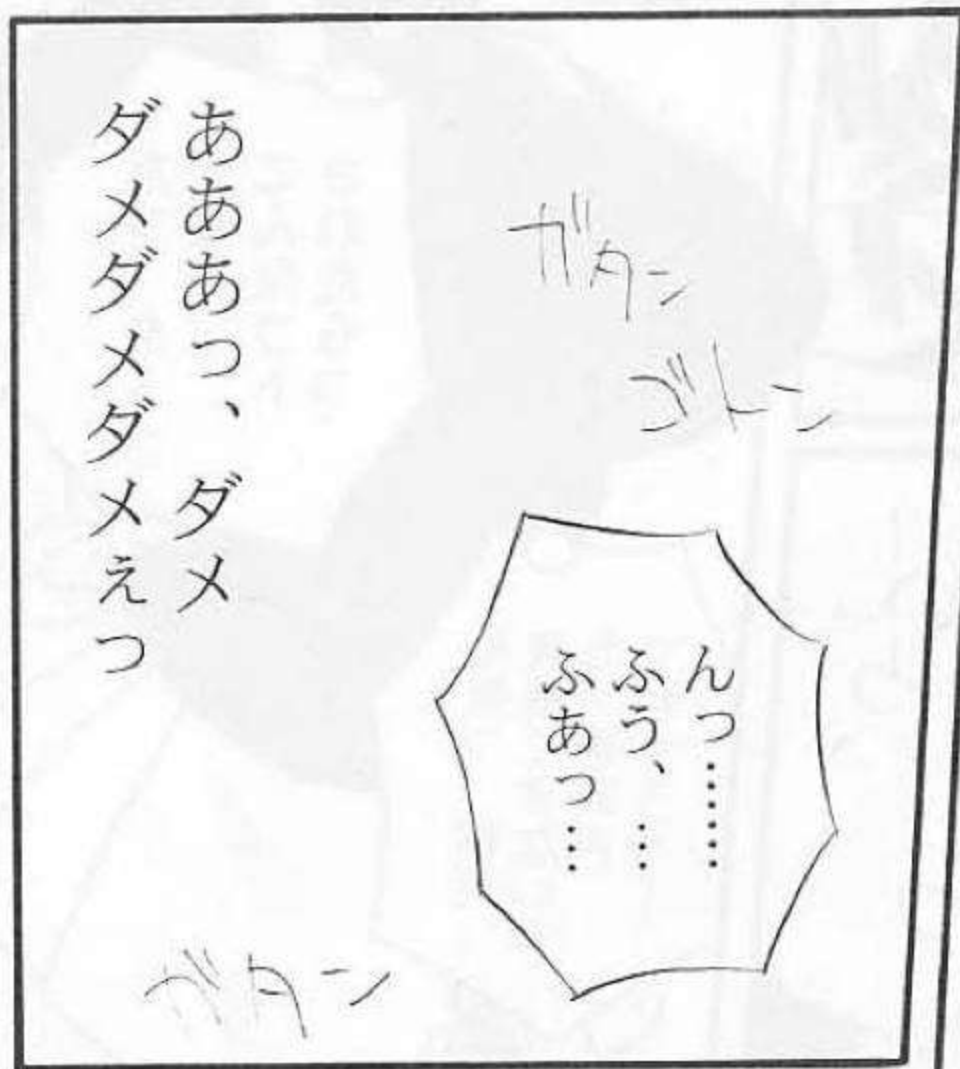 ガタン
ゴトン
んっ……
ふう、…
ふあっ…
あああっ、ダメ
ダメダメダメえっ
ガタン